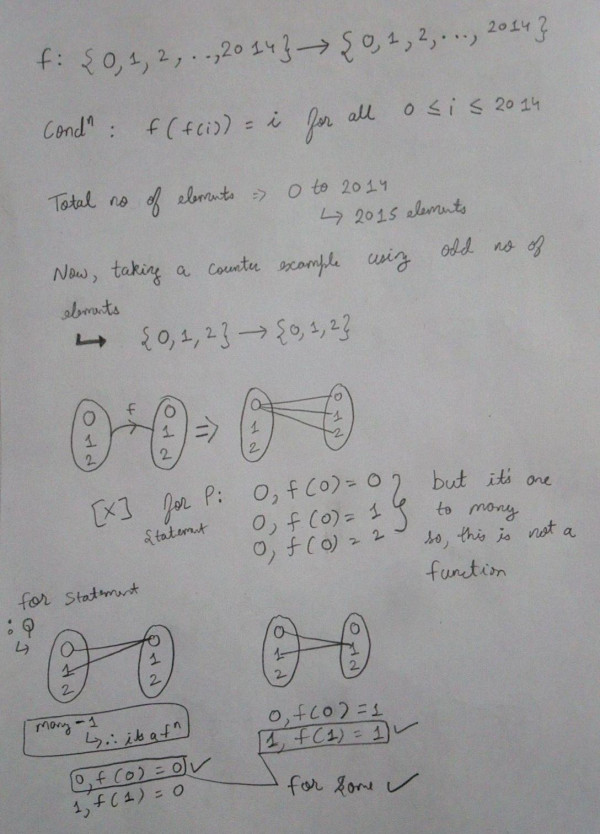 f: {0,1,2,..,2014} → {0,1,2,...,2014}
Condⁿ : f(f(i)) = i for all 0 ≤ i ≤ 2014
Total no of elements => 0 to 2014
↳ 2015 elements
Now, taking a counter example using odd no of
elements
↳ {0,1,2} → {0,1,2}
0 f 0 => 0 0
1 1 1 1
2 2 2 2
[X] for P: 0, f(0) = 0 } but it's one
Statement 0, f(0) = 1 to many
0, f(0) = 2 so, this is not a
function
for Statement
: Q
↳
0 0 0 0
1 1 1 1
2 2 2 2
many-1 0, f(0) = 1
↳ ∴ its a fⁿ 1, f(1) = 1 ✓
0, f(0) = 0 ✓ for some ✓
1, f(1) = 0